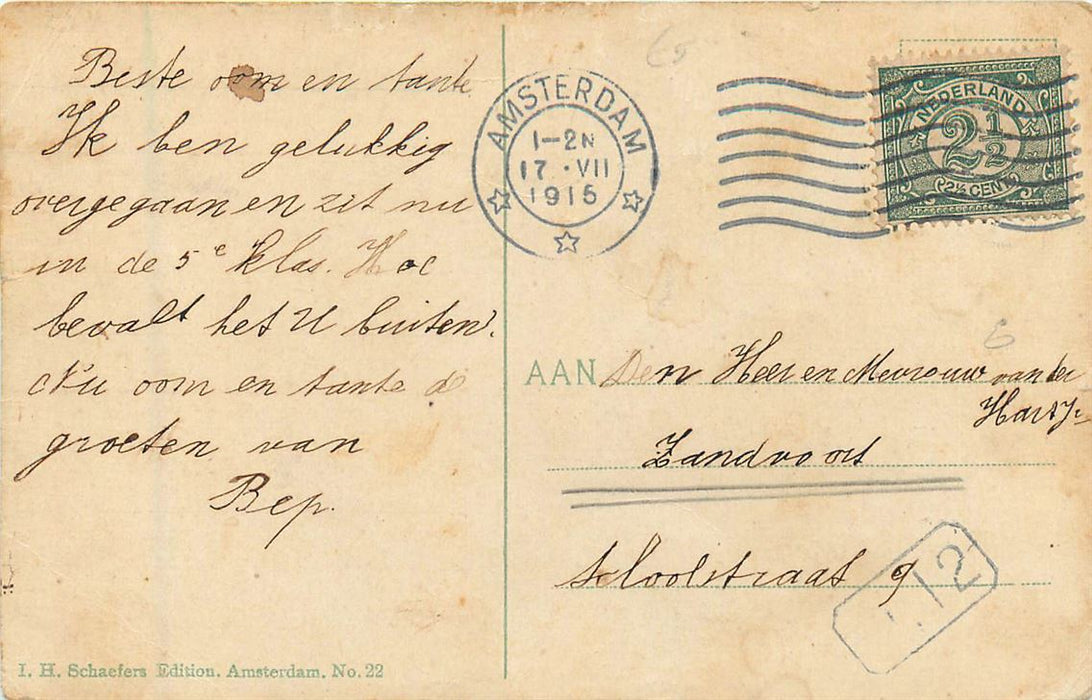 Beste oom en tante
Ik ben gelukkig
overgegaan en zit nu
in de 5e klas. Hoe
bevalt het U buiten.
Nu oom en tante de
groeten van
Bep.
I. H. Schaefers Edition. Amsterdam. No. 22
AMSTERDAM
1-2N
17 · VII
1915
NEDERLAND
2½
2½ CENT
AAN Den Heer en Mevrouw van der
Hart Jr
Zandvoort
Schoolstraat 9
12
6